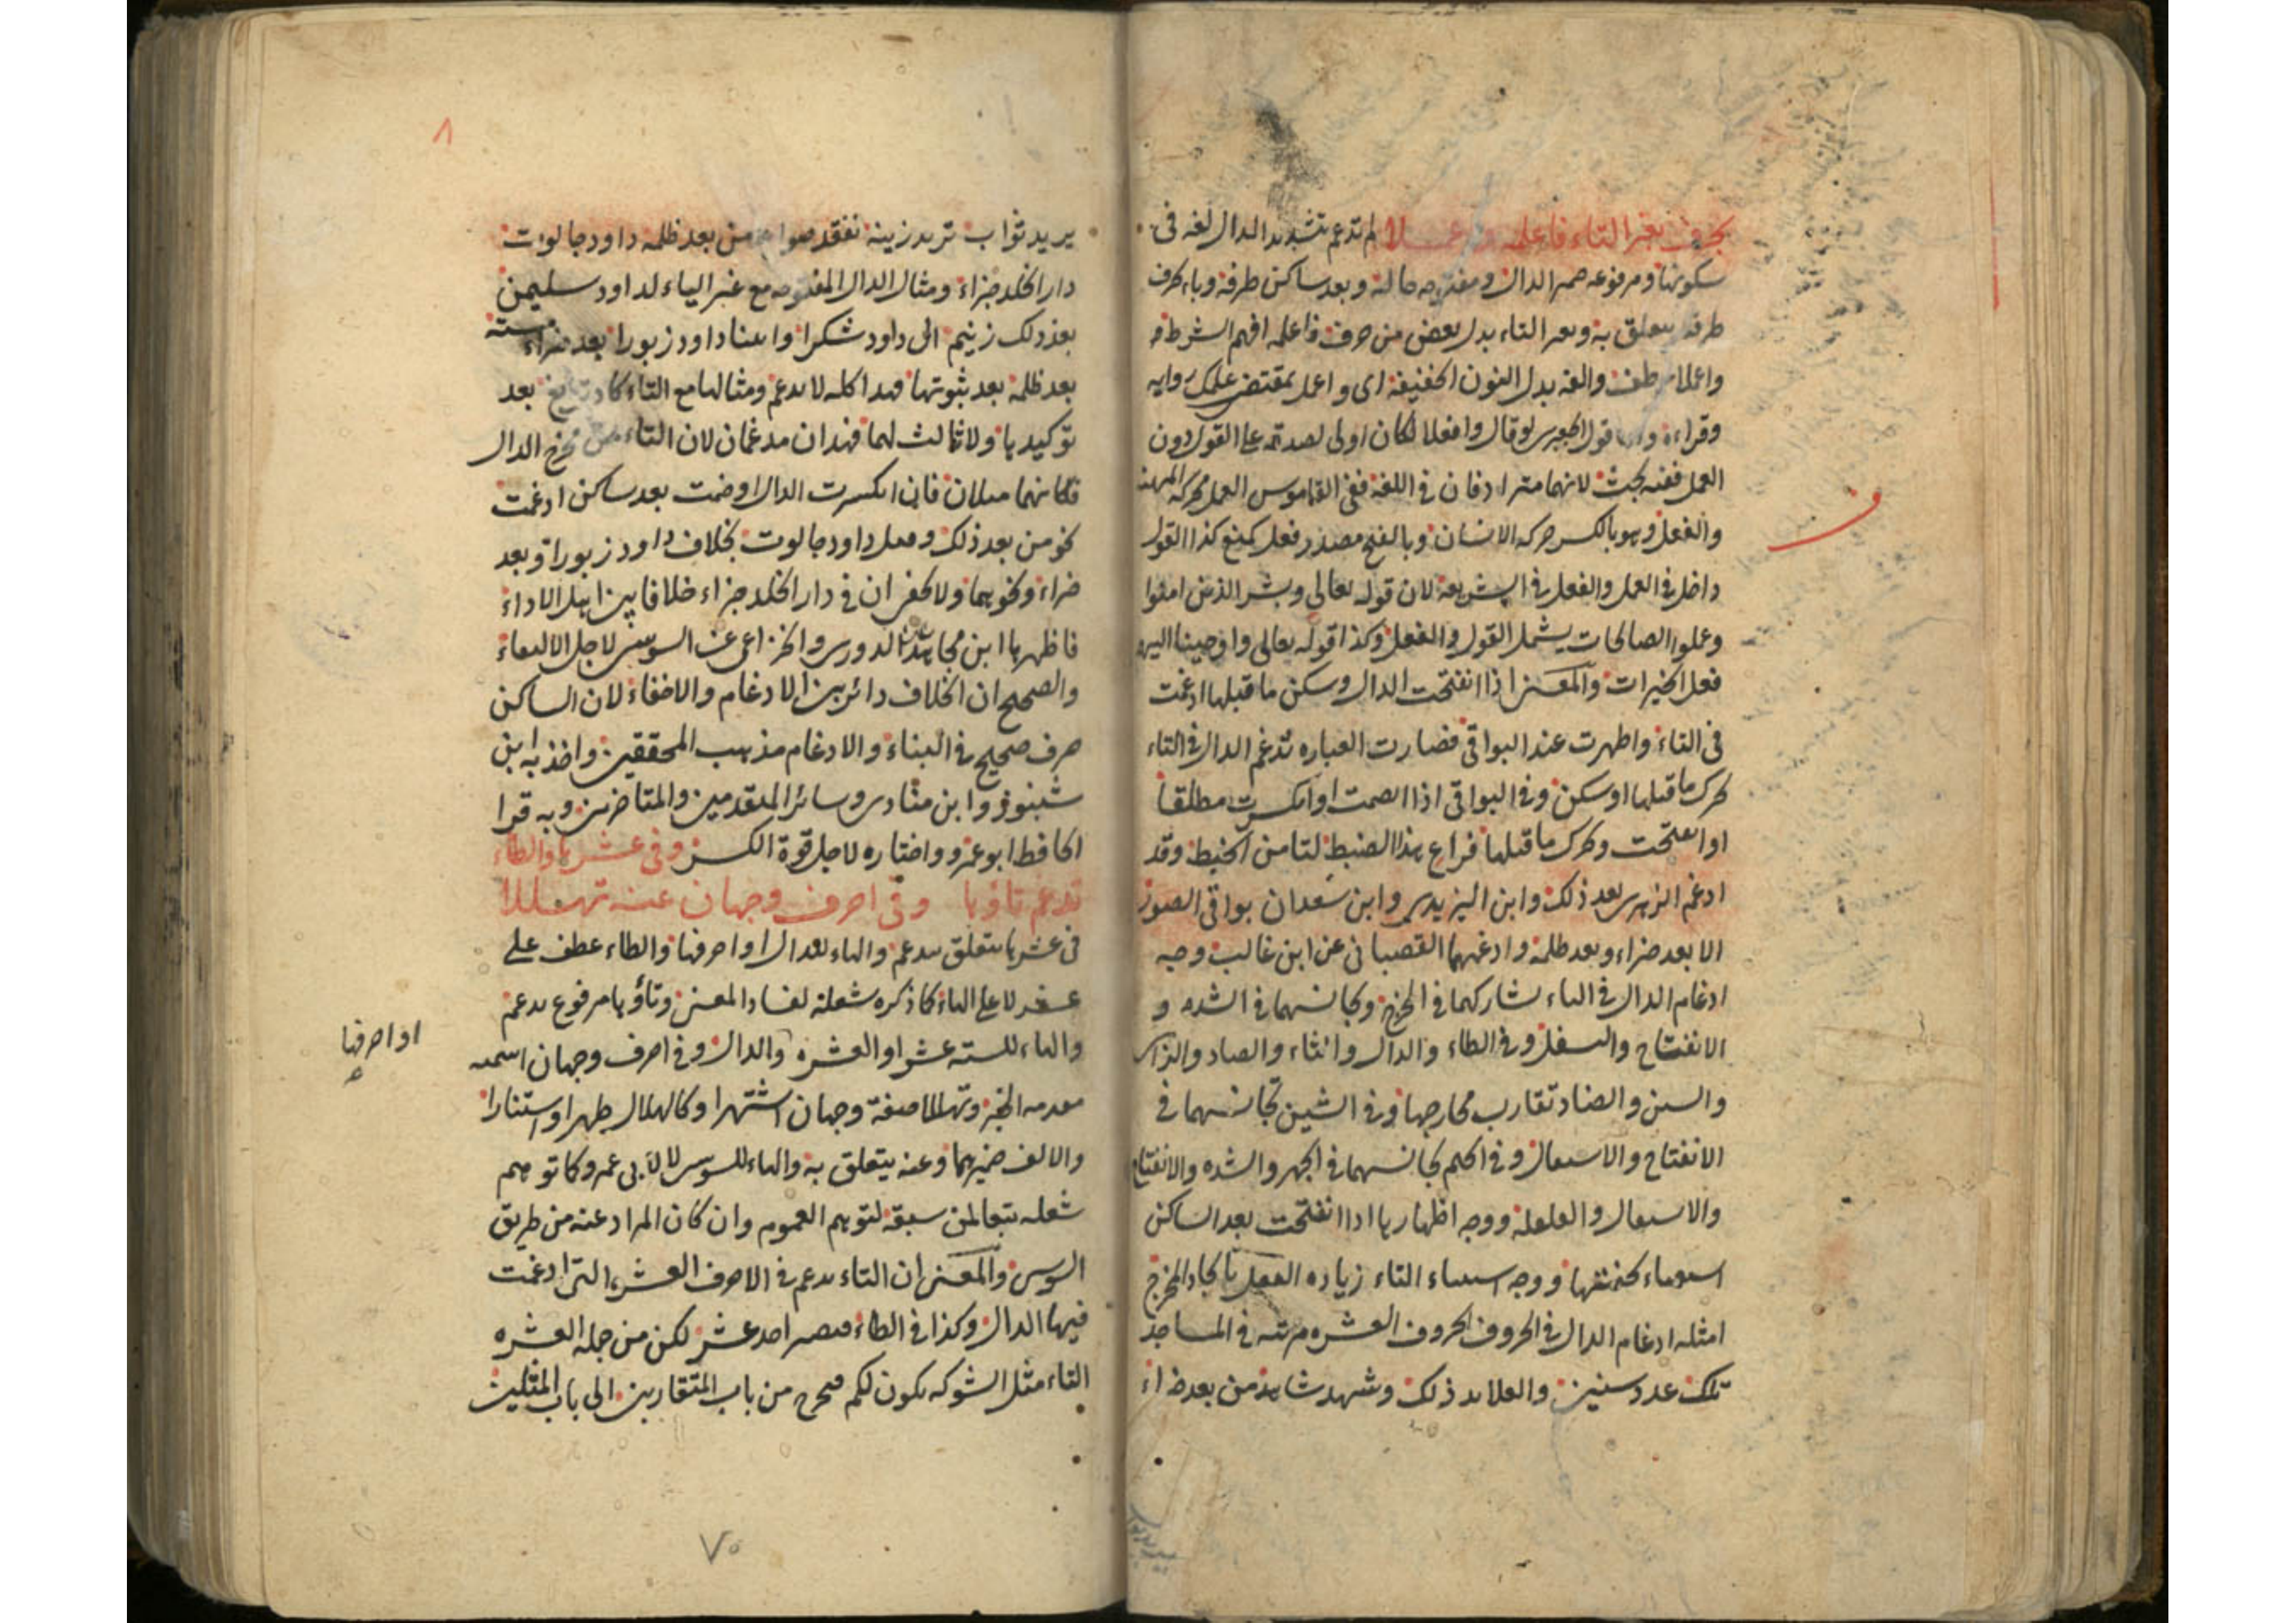 بحرف بغير التاء فاعلمه واعملا لم تدغم بتشديد الدال لغة فى
سكونها ومرفوعه ضمير الدال ومفتوحه حاله وبعد ساكن طرفه وباء بحرف
طرفه يتعلق به وبغير التاء بدل بعض من حرف فاعلمه افهم الشرط
واعملا عطف والفه بدل النون الخفيفة اى واعمل بمقتضى علمك رواية
وقراءة واما قول الجعبرى لو قال وافعلا لكان اولى لصدقه على القول دون
العمل ففيه بحث لانهما مترادفان فى اللغة ففى القاموس العمل محركة المهنة
والفعل وهو بالكسر حركه الانسان وبالفتح مصدر فعل كمنع كذا القول
داخل فى العمل والفعل فى الشريعة لان قوله تعالى وبشر الذين امنوا
وعملوا الصالحات يشمل القول والفعل وكذا قوله تعالى واوحينا اليهم
فعل الخيرات والمعنى اذا انفتحت الدال وسكن ما قبلها ادغمت
فى التاء واظهرت عند البواقى فصارت العباره تدغم الدال فى التاء
تحرك ما قبلها او سكن وفى البواقى اذا انضمت او انكسرت مطلقا
او انفتحت وتحرك ما قبلها فراع هذا الضبط لتامن الخبط وقد
ادغم الزهرى بعد ذلك وابن اليزيدى وابن سعدان بواقى الصور
الا بعد ضراء وبعد ظلمه وادغمهما القصبانى عن ابن غالب وجه
ادغام الدال فى التاء تشاركهما فى المخرج وتجانسهما فى الشده و
الانفتاح والتسفل وفى الطاء والذال والثاء والصاد والزاى
والسين والضاد تقارب مخارجها وفى الشين تجانسهما فى
الانفتاح والاستفال وفى الجيم تجانسهما فى الجهر والشده والانفتاح
والاستفال والقلقلة ووجه اظهارها اذا انفتحت بعد الساكن
استغناء بخفتها ووجه استثناء التاء زياده الثقل باتحاد المخرج
امثله ادغام الدال فى الحروف الحروف العشره مرتبه فى المساجد
تلك عدد سنين والقلائد ذلك وشهد شاهد من بعد ضراء
٨
يريد ثواب تريد زينة نفقد صواع من بعد ظلمه داود جالوت
دار الخلد جزاء ومثال الدال المفتوحه مع غير التاء لداود سليمن
بعد ذلك زنيم ال داود شكرا واتينا داود زبورا بعد ضراء مسته
بعد ظلمه بعد ثبوتها فهذا كله لا يدغم ومثالها مع التاء كاد تزيغ بعد
توكيدها ولا ثالث لهما فهذان مدغمان لان التاء من مخرج الدال
فكانهما مثلان فان انكسرت الدال او ضمت بعد ساكن ادغمت
نحو من بعد ذلك وقتل داود جالوت بخلاف داود زبورا وبعد
ضراء ونحوهما ولا يخفى ان فى دار الخلد جزاء خلافا بين اهل الاداء
فاظهرها ابن مجاهد عن الدورى والخزاعى عن السوسى لاجل الالتقاء
والصحيح ان الخلاف دائر بين الادغام والاخفاء لان الساكن
حرف صحيح فى البناء والادغام مذهب المحققين واخذ به ابن
شنبوذ وابن منادى وسائر المتقدمين والمتاخرين وبه قرا
الحافظ ابو عمرو واختاره لاجل قوة الكسر وفى عشرها والطاء
تدغم تاؤها وفى احرف وجهان عنه تهللا
فى عشرها يتعلق بتدغم والهاء للدال او احرفها والطاء عطف على
عشر لا على الهاء كما ذكره شعلة لفساد المعنى وتاؤها مرفوع تدغم
والهاء للسته عشر او العشره والدال وفى احرف وجهان اسميه
مقدمه الخبر وتهللا صفة وجهان اشتهرا وكالهلال ظهرا واستنارا
والالف ضميرهما وعنه يتعلق به والهاء للسوسى لا لابى عمرو كما توهم
شعله تبعا لمن سبقه لتوهم العموم وان كان المراد عنه من طريق
السوسى والمعنى ان التاء تدغم فى الاحرف العشر التى ادغمت
فيها الدال وكذا فى الطاء فتصير احد عشر لكن من جمله العشره
التاء مثل الشوكه تكون لكم فتخرج من باب المتقاربين الى باب المثلين
او احرفها
٧٥